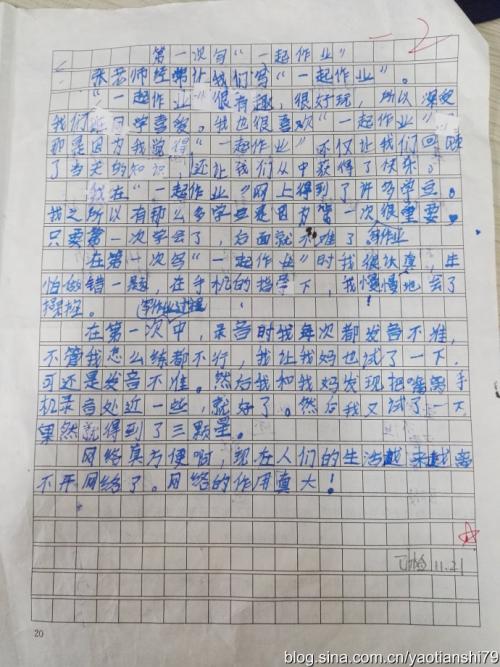 第一次写“一起作业”
张老师经常让我们写“一起作业”。
“一起作业”很有趣，很好玩，所以深受
我们班同学喜爱。我也很喜欢“一起作业”
那是因为我觉得“一起作业”不仅让我们回顾
了当天的知识，还让我们从中获得了快乐。
我在“一起作业”网上得到了许多学豆。
我之所以有那么多学豆是因为第一次很重要，
只要第一次学会了，后面就不难了。写作业
在第一次写“一起作业”时我很认真，生
怕做错一题，在手机的指导下，我慢慢地会了
操控。写作业过程
在第一次中，录音时我每次都发音不准，
不管我怎么练都不行，我让我妈也试了一下，
可还是发音不准。然后我和我妈发现把嘴离手
机录音处近一些，就好了。然后我又试了一下
果然就得到了三颗星。
网络真方便啊；现在人们的生活越来越离
不开网络了。网络的作用真大！
11.21
20
blog.sina.com.cn/yaotianshi79